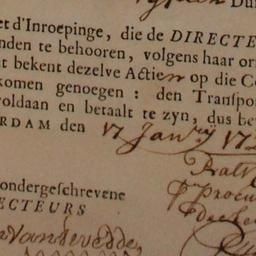 Du
et d'Inroepinge, die de DIRECTE
nden te behooren, volgens haar or
t bekent dezelve Actien op die Co
komen genoegen : den Transpo
voldaan en betaalt te zyn, dus be
ERDAM den 17 Janry 172
ondergeschrevene
ECTEURS
procu